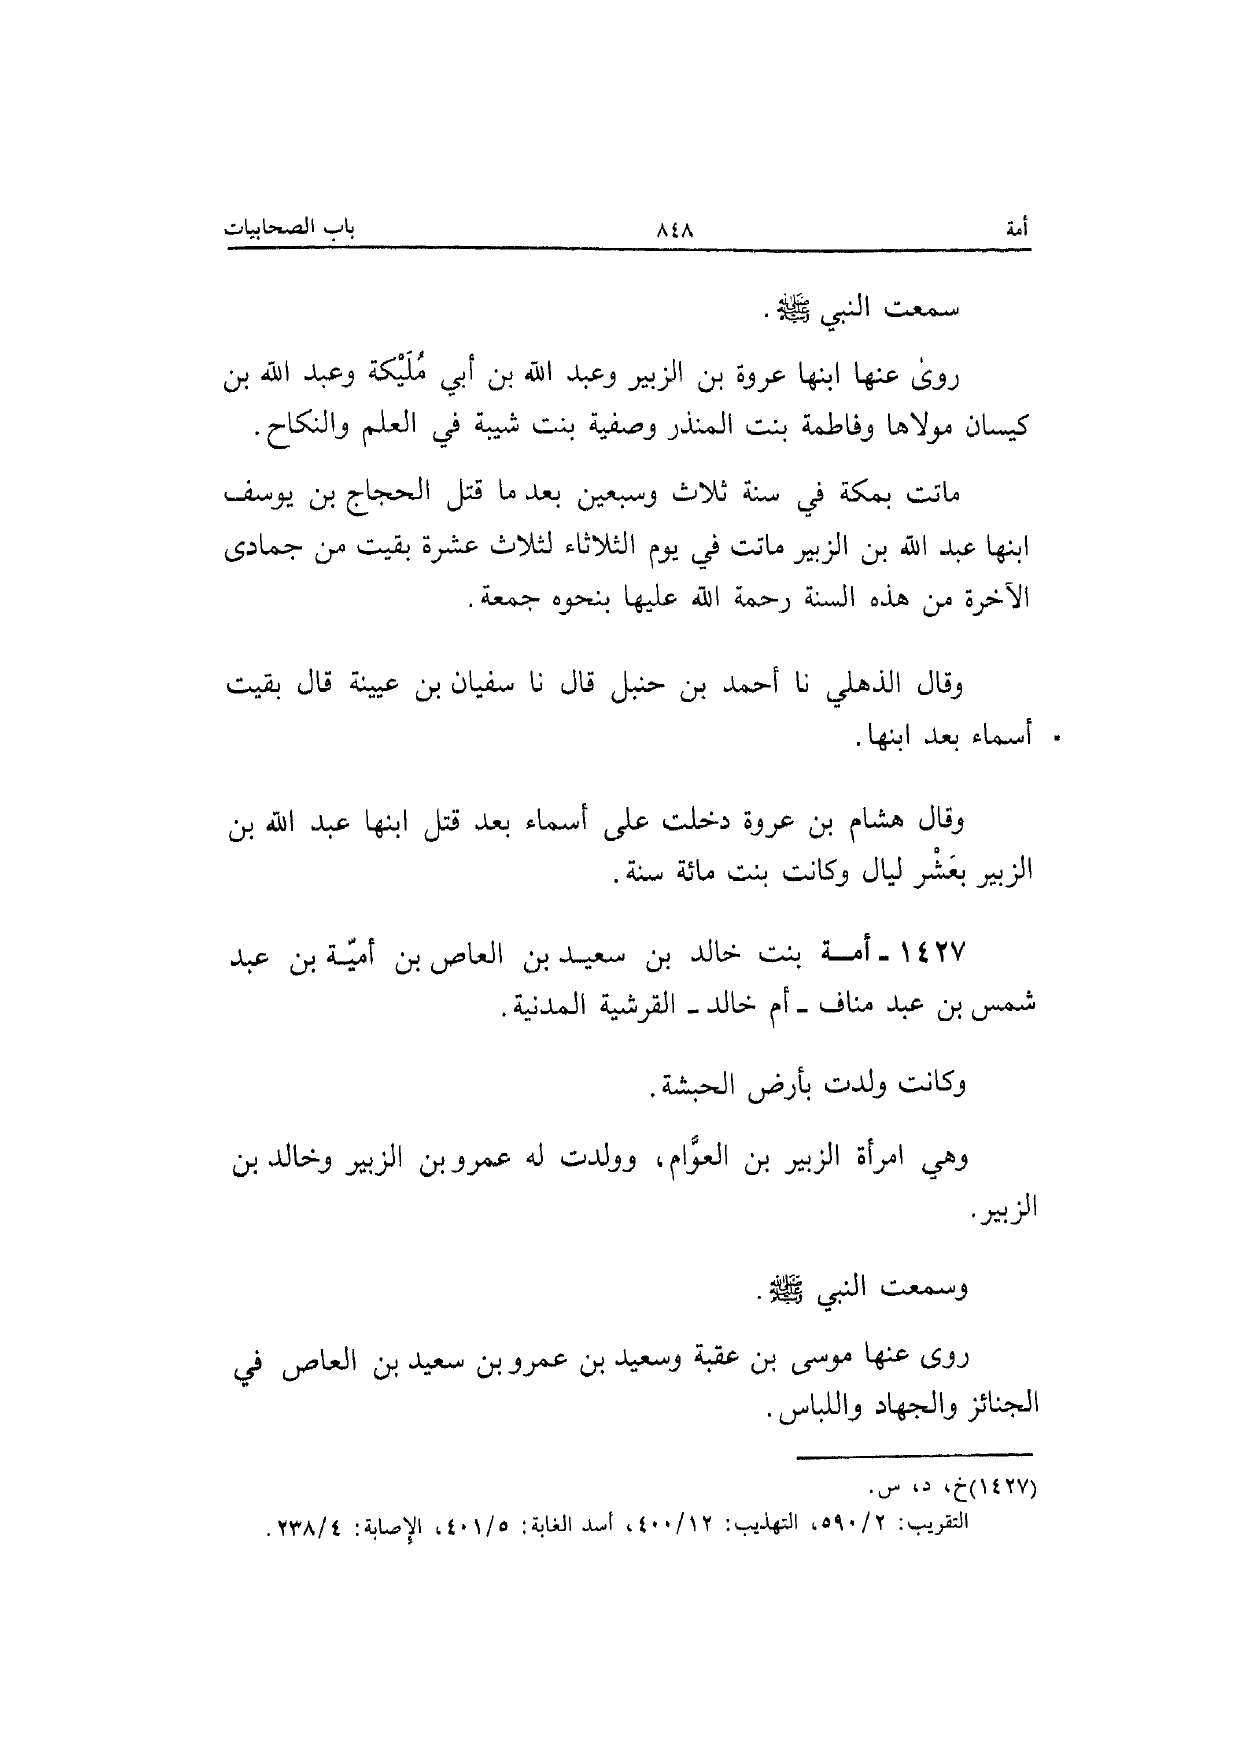 أمة ٨٤٨ باب الصحابيات
سمعت النبي ﷺ.
روىٰ عنها ابنها عروة بن الزبير وعبد الله بن أبي مُلَيْكة وعبد الله بن
كيسان مولاها وفاطمة بنت المنذر وصفية بنت شيبة في العلم والنكاح.
ماتت بمكة في سنة ثلاث وسبعين بعد ما قتل الحجاج بن يوسف
ابنها عبد الله بن الزبير ماتت في يوم الثلاثاء لثلاث عشرة بقيت من جمادى
الآخرة من هذه السنة رحمة الله عليها بنحوه جمعة.
وقال الذهلي نا أحمد بن حنبل قال نا سفيان بن عيينة قال بقيت
أسماء بعد ابنها.
وقال هشام بن عروة دخلت على أسماء بعد قتل ابنها عبد الله بن
الزبير بعَشْر ليال وكانت بنت مائة سنة.
١٤٢٧ ـ أمـة بنت خالد بن سعيـد بن العاص بن أميّـة بن عبد
شمس بن عبد مناف ـ أم خالد ـ القرشية المدنية.
وكانت ولدت بأرض الحبشة.
وهي امرأة الزبير بن العوَّام، وولدت له عمرو بن الزبير وخالد بن
الزبير.
وسمعت النبي ﷺ.
روى عنها موسى بن عقبة وسعيد بن عمرو بن سعيد بن العاص في
الجنائز والجهاد واللباس.
(١٤٢٧)خ، د، س.
التقريب: ٥٩٠/٢، التهذيب: ٤٠٠/١٢، أسد الغابة: ٤٠١/٥، الإصابة: ٢٣٨/٤.